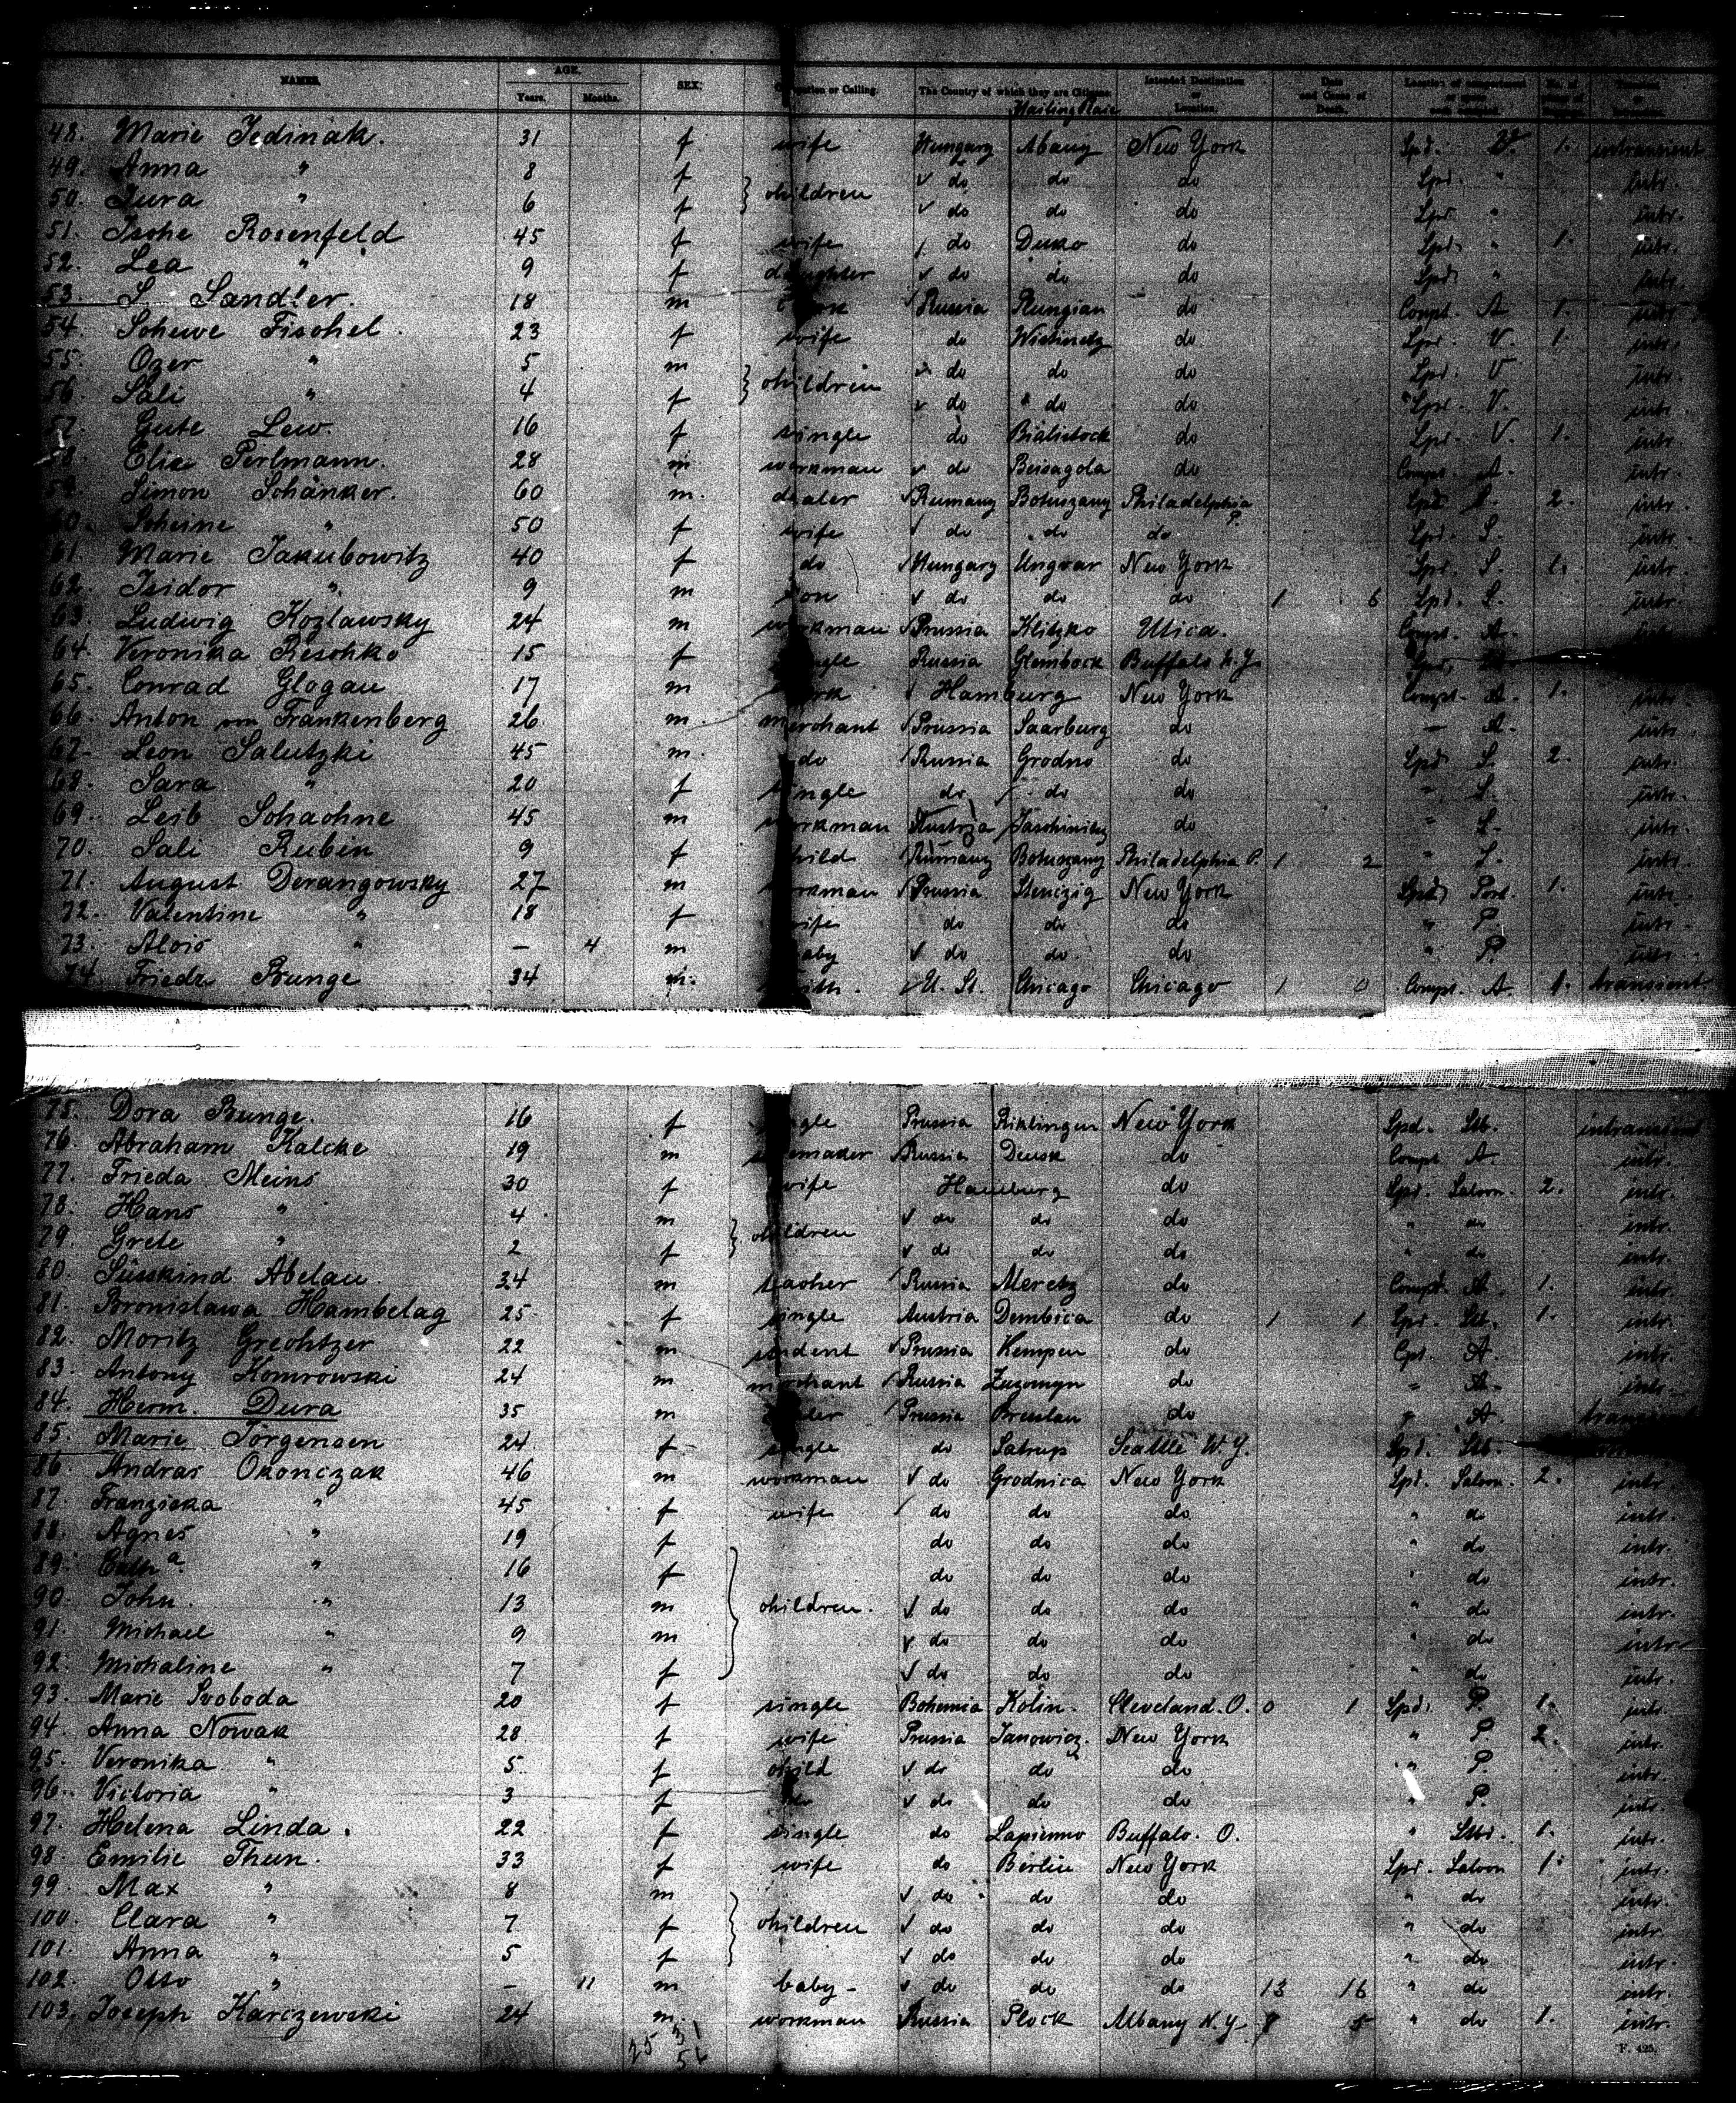 NAMES. AGE. SEX. Occupation or Calling. The Country of which they are Citizens. Intended Destination or Location. Date and Cause of Death.
Years. Months.
48. Marie Jedinak. 31 f wife Hungary Abauy New York Spd. 1. intransient
49. Anna " 8 f do do do Spd. " intr.
50. Jura " 6 f } children do do do Spd. " intr.
51. Isohe Rosenfeld 45 f wife do do Spd. " 1. intr.
52. Lea " 9 f daughter do do do Spd. " intr.
53. S. Sandler. 18 m Russia Plungian do Compt. A 1. intr.
54. Schewe Fischel. 23 f wife do do Spd. V. 1. intr.
55. Ozer " 5 m do do do Spd. V intr.
56. Sali " 4 f } children do do do Spd. V. intr.
57. Gute Lew. 16 f single do Bialistock do Spd. V. 1. intr.
58. Elia Perlmann. 28 m workman do Beisagola do Compt. A. intr.
59. Simon Schänker. 60 m. dealer Rumany Botuszany Philadelphia P. Spd. S. 2. intr.
60. Scheine " 50 f wife do do do Spd. S. intr.
61. Marie Jakubowitz 40 f do Hungary Ungvar New York Spd. S. 1. intr.
62. Isidor " 9 m son do do do 1 6 Spd. S. intr.
63. Ludwig Kozlawsky 24 m workman Prussia Klitzko Utica. Compt. A.
64. Veronika Reschko 15 f single Russia Glembock Buffalo N.Y.
65. Conrad Glogau 17 m Hamburg New York Compt. A. 1. intr.
66. Anton von Frankenberg 26 m. merchant Prussia Saarburg do — A. intr.
67. Leon Salutzki 45 m. do Russia Grodno do Spd. S. 2. intr.
68. Sara " 20 f single do do do " S. intr.
69. Leib Schachne 45 m workman Austria do " S. intr.
70. Sali Rubin 9 f child Rumany Botuszany Philadelphia P. 1 2 " S. intr.
71. August Derangowsky 27 m workman Prussia Stenczig New York Spd. Port. 1. intr.
72. Valentine " 18 f wife do do do " P. intr.
73. Alois " — 4 m baby do do do " P. intr.
74. Friedr. Bunge 34 m. U. St. Chicago Chicago 1 0 Compt. A. 1. transient
75. Dora Bunge. 16 f single Prussia Riklingen New York Spd. Stb. intransient
76. Abraham Kalcke 19 m Russia Densk do Compt. A. intr.
77. Frieda Meins 30 f wife Hamburg do Spd. Saloon. 2. intr.
78. Hans " 4 m do do do " do intr.
79. Grete " 2 f } children do do do " do intr.
80. Süsskind Abelau. 34 m teacher Russia Meretz do Compt. A. 1. intr.
81. Bronislawa Hambelag 25 f single Austria Dembica do 1 1 Spd. Stb. 1. intr.
82. Moritz Grechtzer 22 m student Prussia Kempen do Cpt. A. intr.
83. Antony Komrowski 24 m merchant Russia do " A. intr.
84. Herm. Dura 35 m Prussia Breslau do " A.
85. Marie Jörgensen 24 f single do Satrup Seattle W. Y. Spd. Stb.
86. Andras Okonczak 46 m workman do Grodnica New York Spd. Saloon. 2. intr.
87. Franziska " 45 f wife do do do " do intr.
88. Agnes " 19 f do do do " do intr.
89. Cath.a " 16 f do do do " do intr.
90. John. " 13 m } children. do do do " do intr.
91. Michael " 9 m do do do " do intr.
92. Michaline " 7 f do do do " do intr.
93. Marie Svoboda 20 f single Bohemia Kolin. Cleveland. O. 0 1 Spd. P. 1. intr.
94. Anna Nowak 28 f wife Prussia Janowicz. New York " P. 2. intr.
95. Veronika " 5 f child do do do " P. intr.
96. Victoria " 3 f do do do do " P. intr.
97. Helena Linda. 22 f single do Lapienno Buffalo. O. " Stbd. 1. intr.
98. Emilie Thun. 33 f wife do Berlin New York Spd. Saloon 1. intr.
99. Max " 8 m do do do " do intr.
100. Clara " 7 f } children do do do " do intr.
101. Anna " 5 f do do do " do intr.
102. Otto " — 11 m baby do do do 13 16 " do intr.
103. Joseph Karczewski 24 m. workman Russia Plock Albany N.Y. " do 1. intr.
25 31
56
F. 425.